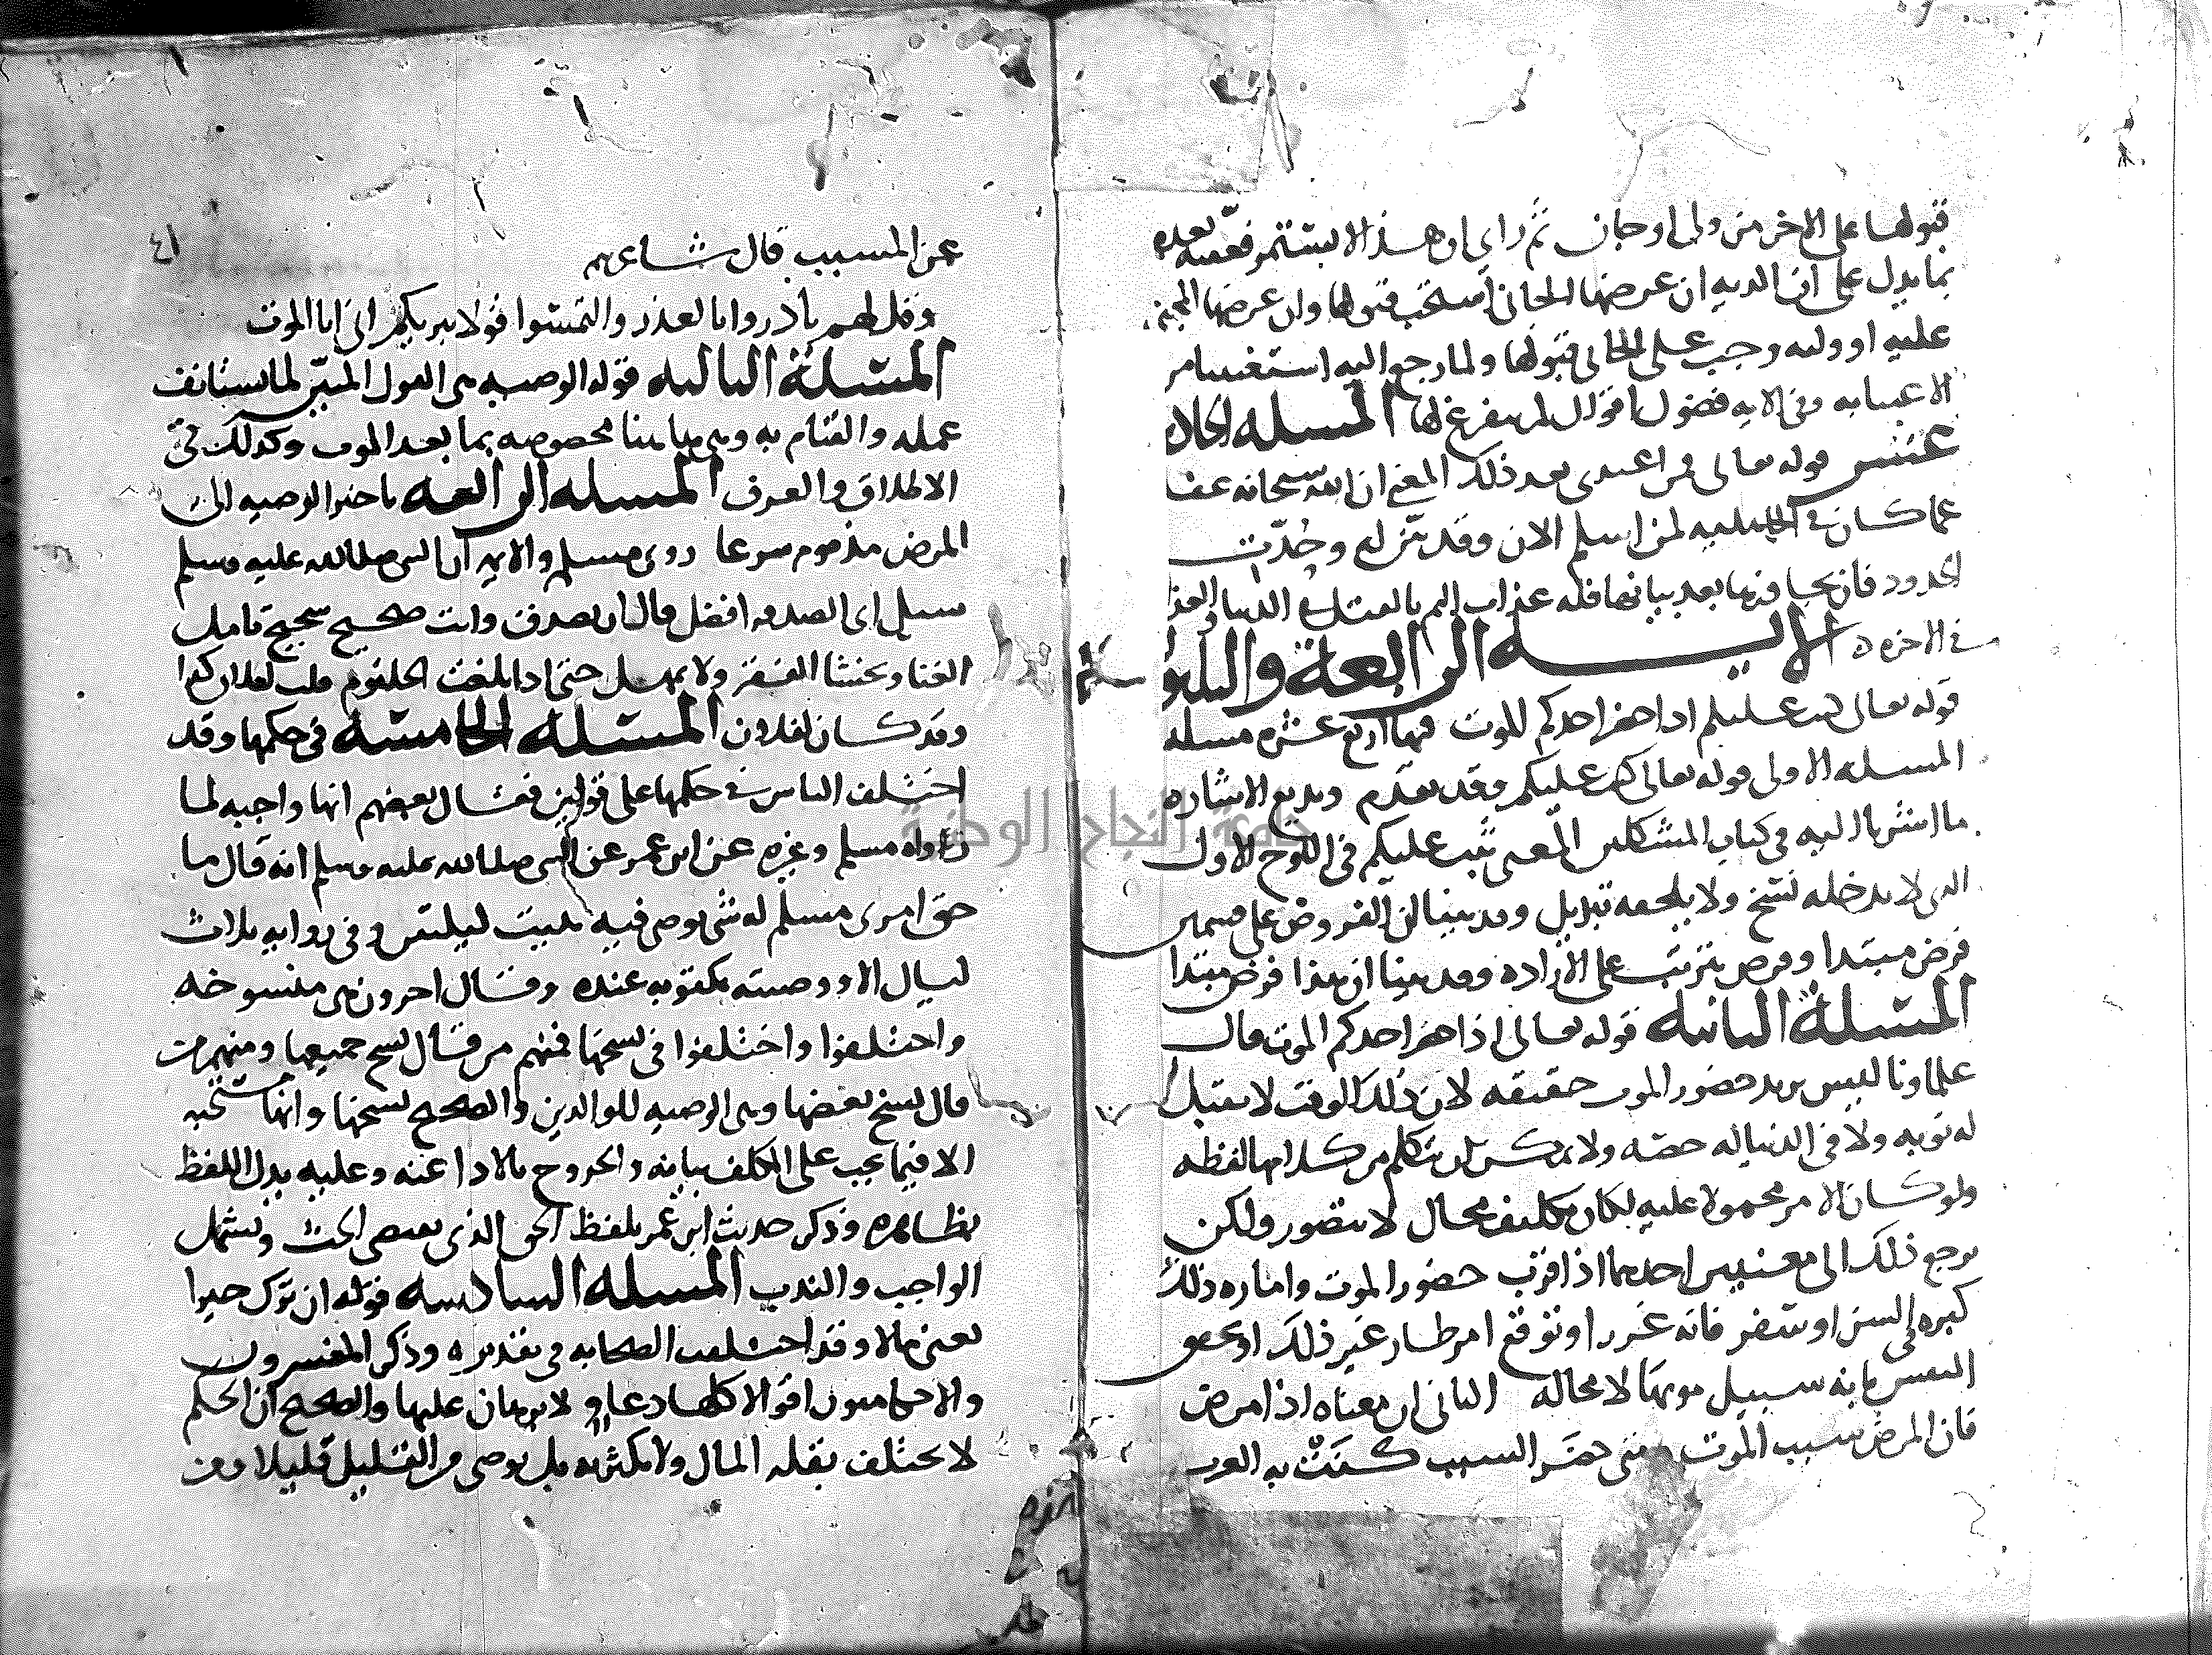 قبولها على الاخر من ولى او جان ثم راى ان هذا لا يستتمر فعقبه بعده
بما يدل على ان الديه ان عرضها الجانى استحب قبولها وان عرضها المجنى
عليه او وليه وجب على الجانى قبولها ولما رجع اليه استغنينا من
الاعيا به وفى الايه فضول اقوال لم نفرغ لها المسله الحاد
عشر قوله تعالى فمن اعتدى بعد ذلك المعنى ان الله سبحانه عفا
عما كان فى الجاهليه لمن اسلم الان وقد بين لهم وحدّت
الحدود فان تجاوزها بعد بيانها فله عذاب اليم بالقتل فى الدنيا والعذاب
فى الاخره
الايـــه الرابعة والثلاثون
قوله تعالى كتب عليكم اذا حضر احدكم الموت فيها اربع عشره مسله
المسله الاولى قوله تعالى كتب عليكم وقد تقدم وبديع الاشاره
ما اشرنا اليه فى كتاب المشكلين المعنى ثبت عليكم فى اللوح الاول
الذى لا يدخله نسخ ولا يلحقه تبديل وقد بينا ان الفروض على قسمين
فرض مبتدا وفرض يترتب على الاراده وقد بينا ان هذا فرض مبتدا
المسلة الثانيه قوله تعالى اذا حضر احدكم الموت قال
علماونا ليس يريد حضور الموت حقيقه لان ذلك الوقت لا تقبل
له توبه ولا فى الدنيا له حصه ولا يمكن ان يتكلم من كلامها لفظه
ولو كان الامر محمولا عليه لكان تكليف محال لا يتصور ولكن
يرجع ذلك الى معنيين احدهما اذا قرب حضور الموت واماره ذلك
كبره فى السن او سفر فانه غرر او توقع امر طار غير ذلك او تحقق
النفس بانه سبيل موتها لا محاله الثانى ان معناه اذا مرض
فان المرض سبب الموت ومتى حضر السبب كنت به العرب
٤١
عن المسبب قال شاعرهم
وقل لهم بادروا بالعذر والتمسوا قولا يبريكم انى انا الموت
المسلة الثالثه قوله الوصيه هى القول المبيّن لما يستانف
عمله والقيام به وهى هاهنا مخصوصه بما بعد الموت وكذلك فى
الاطلاق والعرف المسله الرابعه تاخير الوصيه الى
المرض مذموم شرعا روى مسلم والايمه ان النبى صلى الله عليه وسلم
سيل اى الصدقه افضل قال ان تصدق وانت صحيح شحيح تامل
الغنا وتخشا الفقر ولا تمهل حتى اذا بلغت الحلقوم قلت لفلان كذا
وقد كان لفلان المسله الخامسه فى حكمها وقد
اختلف الناس فى حكمها على قولين فقال بعضهم انها واجبه لما
رواه مسلم وغيره عن ابن عمر عن النبى صلى الله عليه وسلم انه قال ما
حق امرى مسلم له شى يوصى فيه يبيت ليلتين وفى روايه ثلاث
ليال الا ووصيته مكتوبه عنده وقال اخرون هى منسوخه
واختلفوا واختلفوا فى نسخها فمنهم من قال نسخ جميعها ومنهم من
قال نسخ بعضها وهى الوصيه للوالدين والصحيح نسخها وانها مستحبه
الا فيما يجب على المكلف بيانه والخروج بالادا عنه وعليه يدل اللفظ
بظاهره وذكر حديث ابن عمر بلفظ الحق الذى يقتضى الحث ويشمل
الواجب والندب المسله السادسه قوله ان ترك خيرا
يعنى مالا وقد اختلف الصحابه فى تقديره وذكر المفسرون
والاحكاميون اقوالا كلها دعاوٍ لا برهان عليها والصحيح ان الحكم
لا يختلف بقله المال ولا بكثرته بل يوصى من القليل قليلا ومن